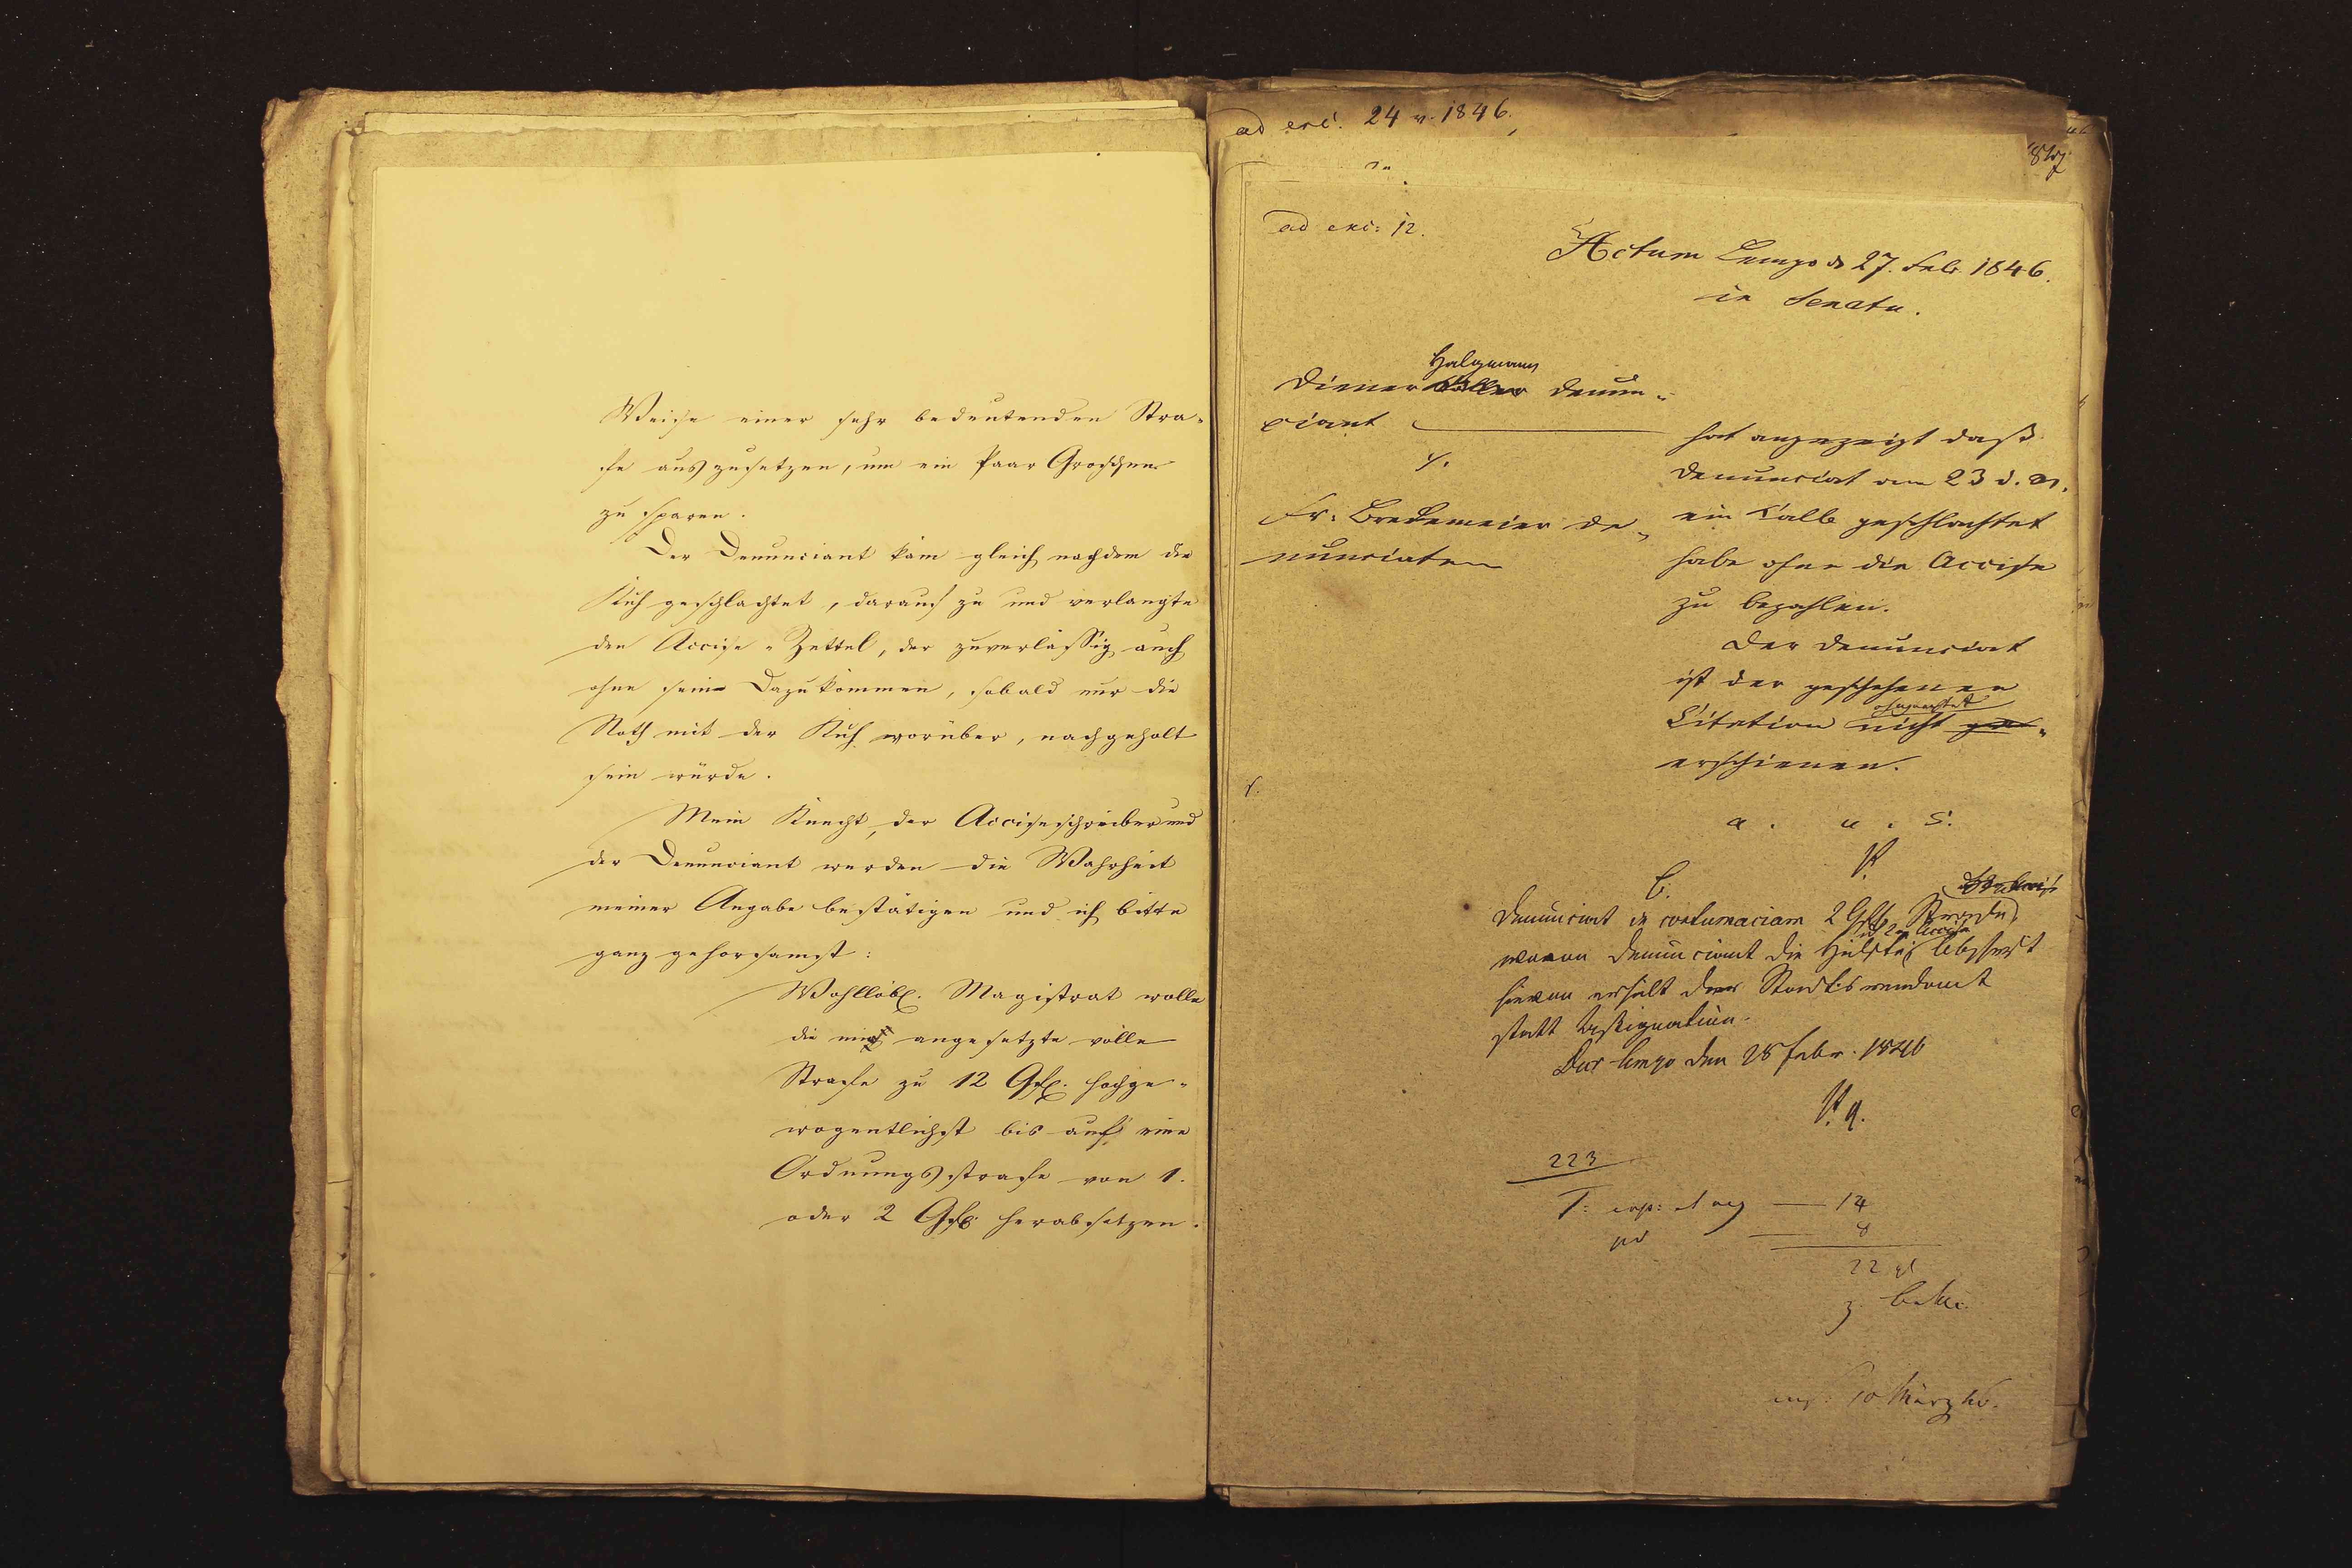 Weise einer sehr bedeutenden Stra-
fe auszusetzen, um ein Paar Groschen
zu sparen.
Der Denunciant kam gleich nachdem die
Kuh geschlachtet, darauf zu und verlangte
den Accise-Zettel, der zuverlässig auch
ohne sein Dazukommen, sobald nur die
Noth mit der Kuh vorüber, nachgeholt
sein würde.
Mein Knecht, der Acciseschreiber und
der Denunciant werden die Wahrheit
meiner Angabe bestätigen und ich bitte
ganz gehorsamst:
Wohllöbl. Magistrat wolle
die mir angesetzte volle
Strafe zu 12 Gfl. hochge-
wogentlichst bis auf eine
Ordnungsstrafe von 1.
oder 2 Gfl. herabsetzen.
ad exc. 24 v. 1846.
ad exc: 12.
Actum Lemgo d 27. Febr. 1846.
in Senatu.
Halgmann
Diener denun-
ciant
./.
Fr. Bredemeier de-
nunciaten
hat angezeigt daß
Denunciat am 23 d. M.
ein Kalb geschlachtet
habe ohne die Accise
zu bezahlen.
Der Denunciat
ist der geschehenen
ohngeachtet
Citation nicht
erschienen.
a. u. s.
Denunciat in contumaciam 2 Gfl. Strafe
wovon Denunciant die Hälfte
hievon erhält der Stadtsrendant
statt Assignation.
Dec. Lemgo den 28 Febr. 1846
223
14
8
22
10 März